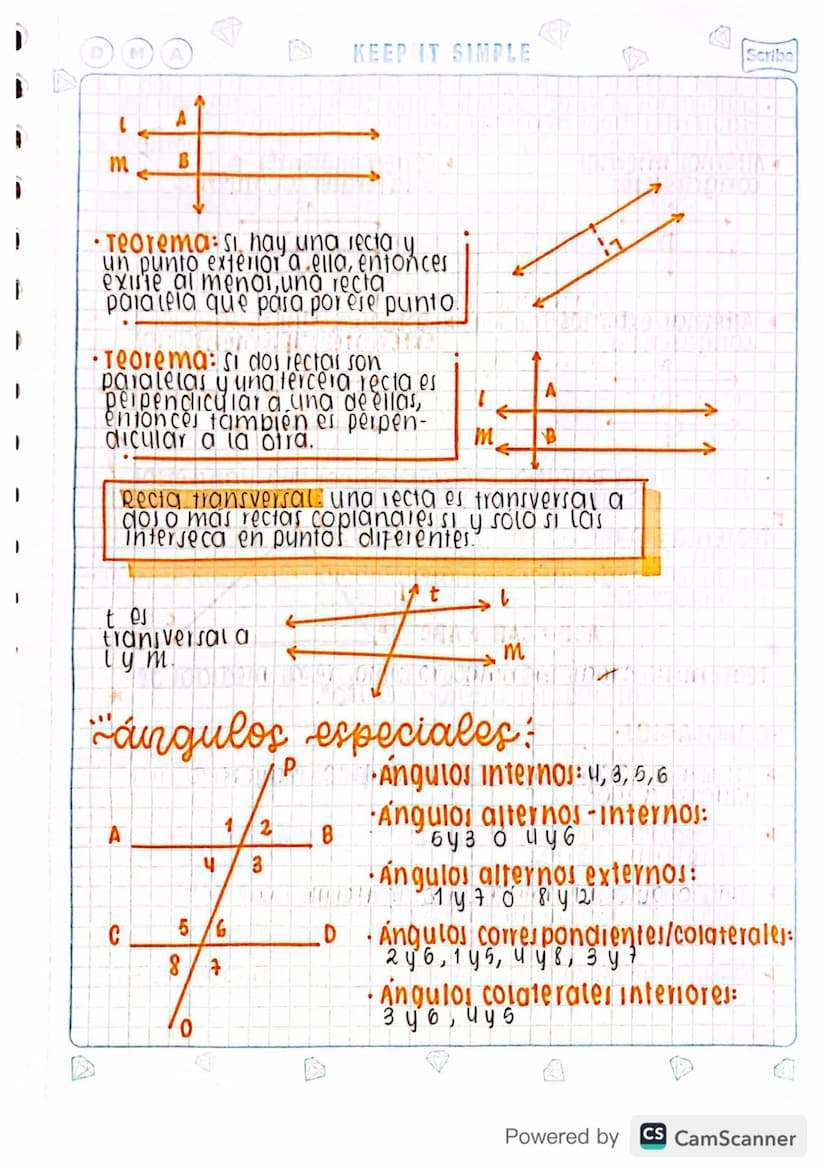 D M A
KEEP IT SIMPLE
Scribe
l
A
m
B
• Teorema: Si hay una recta y
un punto exterior a ella, entonces
existe al menos, una recta
paralela que pasa por ese punto.
• Teorema: Si dos rectas son
paralelas y una tercera recta es
perpendicular a una de ellas,
entonces también es perpen-
dicular a la otra.
l
A
M
B
Recta transversal: una recta es transversal a
dos o más rectas coplanares si y sólo si las
interseca en puntos diferentes.
t es
transversal a
l y m.
t
l
m
ángulos especiales:
P
A
1 2
B
4 3
C
5 6
D
8 7
O
• Ángulos internos: 4, 3, 5, 6
• Ángulos alternos-internos:
5 y 3 ó 4 y 6
• Ángulos alternos externos:
1 y 7 ó 8 y 2
• Ángulos correspondientes/colaterales:
2 y 6, 1 y 5, 4 y 8, 3 y 7
• Ángulos colaterales interiores:
3 y 6, 4 y 5
Powered by CS CamScanner